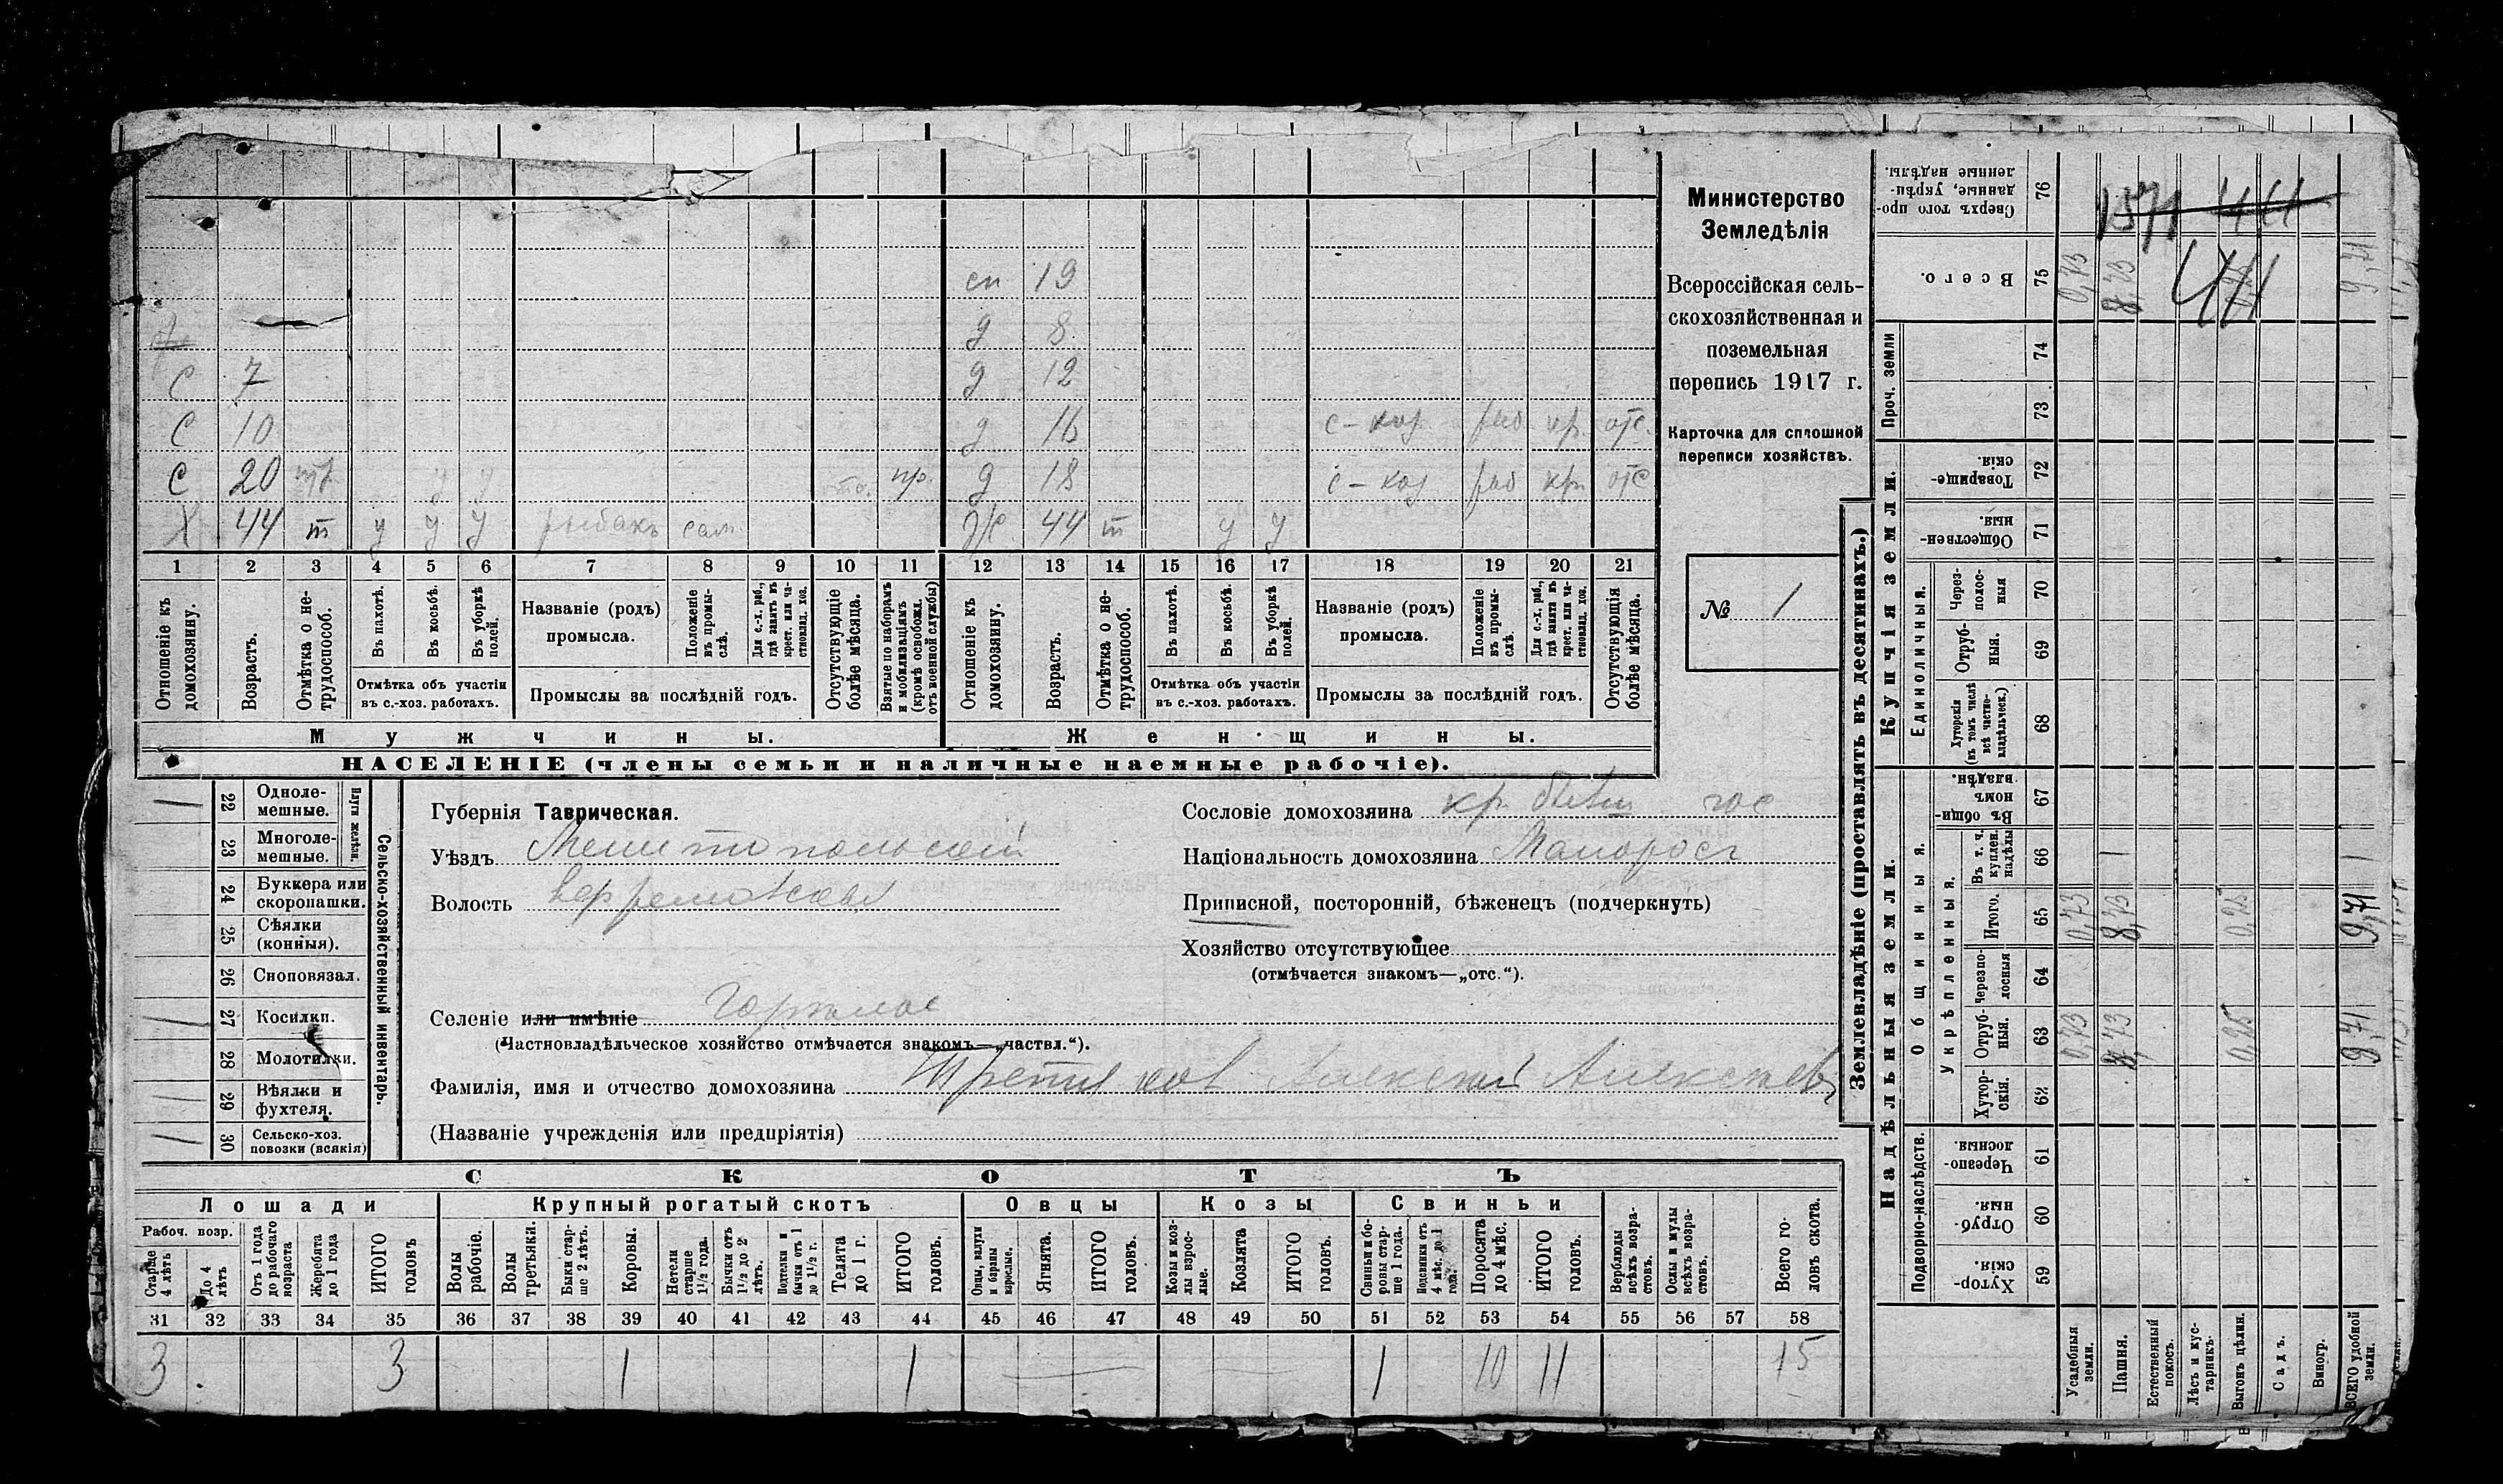 сп 19
д 8
С 7 д 12
С 10 д 16 с-хоз. раб кр. отс.
С 20 у у пр. д 18 с-хоз раб кр отс
Х 44 т у у у рыбакъ сам. ж 44 т у у
1 2 3 4 5 6 7 8 9 10 11 12 13 14 15 16 17 18 19 20 21
Отношеніе къ домохозяину.
Возрастъ.
Отмѣтка о не-трудоспособ.
Въ пахотѣ.
Въ косьбѣ.
Въ уборкѣ полей.
Отмѣтка объ участіи
въ с.-хоз. работахъ.
Названіе (родъ)
промысла.
Положеніе въ промы-слѣ.
Для с.-х. раб., гдѣ занятъ въ крест. или ча-стновлад. хоз.
Промыслы за послѣдній годъ.
Отсутствующіе болѣе мѣсяца.
Взятые по наборамъ и мобилизаціямъ (кромѣ освобожд. отъ военной службы)
Отношеніе къ домохозяину.
Возрастъ.
Отмѣтка о не-трудоспособ.
Въ пахотѣ.
Въ косьбѣ.
Въ уборкѣ полей.
Отмѣтка объ участіи
въ с.-хоз. работахъ.
Названіе (родъ)
промысла.
Положеніе въ промы-слѣ.
Для с.-х. раб., гдѣ занята въ крест. или ча-стновлад. хоз.
Промыслы за послѣдній годъ.
Отсутствующія болѣе мѣсяца.
Мужчины.
Женщины.
НАСЕЛЕНІЕ (члены семьи и наличные наемные рабочіе).
Министерство
Земледѣлія
Всероссійская сель-
скохозяйственная и
поземельная
перепись 1917 г.
Карточка для сплошной
переписи хозяйствъ.
№ 1
Сельско-хозяйственный инвентарь.
Плуги желѣзн.
22 Одноле-мешные.
23 Многоле-мешные.
24 Буккера или скоропашки.
25 Сѣялки (конныя).
26 Сноповязал.
27 Косилки.
28 Молотилки.
29 Вѣялки и фухтеля.
30 Сельско-хоз. повозки (всякія)
Губернія Таврическая.
Уѣздъ Мелитопольскій
Волость
Селеніе или имѣніе Горѣлое
(Частновладѣльческое хозяйство отмѣчается знакомъ—„частвл.“).
Фамилія, имя и отчество домохозяина Третьяков Алексѣй Алексѣев
(Названіе учрежденія или предпріятія)
Сословіе домохозяина кр. бывш. гос
Національность домохозяина Малоросъ
Приписной, посторонній, бѣженецъ (подчеркнуть)
Хозяйство отсутствующее
(отмѣчается знакомъ—„отс.“).
СКОТЪ
Лошади
Крупный рогатый скотъ
Овцы
Козы
Свиньи
Рабоч. возр.
Старше 4 лѣтъ
До 4 лѣтъ
Отъ 1 года до рабочаго возраста
Жеребята до 1 года
ИТОГО головъ
Волы рабочіе.
Волы третьяки.
Быки стар-ше 2 лѣтъ.
Коровы.
Нетели старше 1½ года.
Бычки отъ 1½ до 2 лѣтъ.
Подтелки и бычки отъ 1 до 1½ г.
Телята до 1 г.
ИТОГО головъ.
Овцы, валухи и бараны взрослые.
Ягнята.
ИТОГО головъ.
Козы и коз-лы взрос-лые.
Козлята
ИТОГО головъ.
Свиньи и бо-ровы стар-ше 1 года.
Подсвинки отъ 4 мѣс. до 1 года.
Поросята до 4 мѣс.
ИТОГО головъ.
Верблюды всѣхъ возра-стовъ.
Ослы и мулы всѣхъ возра-стовъ.
Всего го-ловъ скота.
31 32 33 34 35 36 37 38 39 40 41 42 43 44 45 46 47 48 49 50 51 52 53 54 55 56 57 58
3 3 1 1 1 10 11 15
Землевладѣніе (проставлять въ десятинахъ.)
Сверхъ того про-данные, укрѣп-ленные надѣлы. 76 1571 411
Всего. 75 0,73 8,73 411 0,25 9,71
Проч. земли 74
73
Купчія земли.
Товарище-скія. 72
Обществен-ныя. 71
Единоличныя.
Через-полос-ныя 70
Отруб-ныя. 69
Хуторскія (въ томъ числѣ всѣ частно-владѣльческ.) 68
Надѣльныя земли.
Общинныя.
Въ общин-номъ владѣн. 67
Укрѣпленныя.
Въ т. ч. куплен. надѣлы 66
Итого. 65 0,73 8,73 0,25 9,71
Черезпо-лосныя 64
Отруб-ныя. 63 0,73 8,73 0,25 9,71
Хутор-скія. 62
Подворно-наслѣдств.
Черезпо-лосныя. 61
Отруб-ныя. 60
Хутор-скія. 59
Усадебныя земли.
Пашня.
Естественный покосъ.
Лѣсъ и кус-тарникъ.
Выгонъ цѣлин.
Садъ.
Виногр.
ВСЕГО удобной земли.